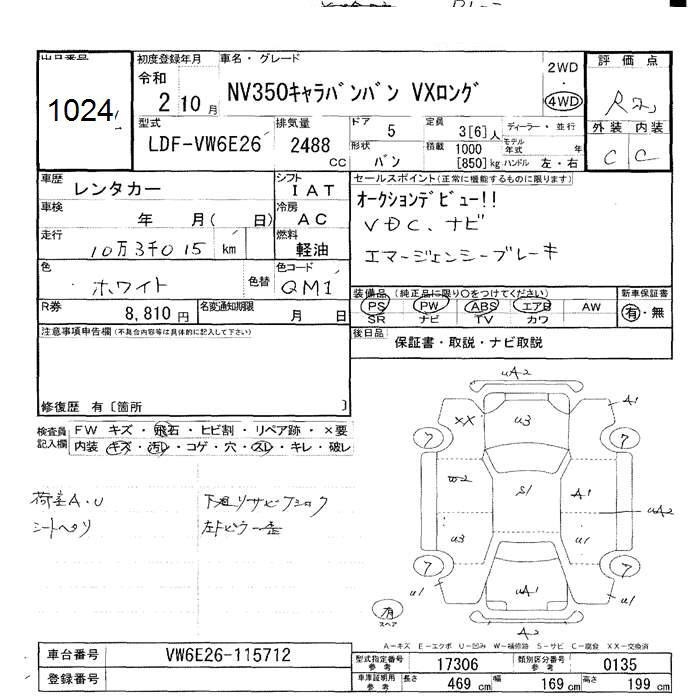 出品番号
1024
初度登録年月
令和
2 10 月
車名・グレード
NV350キャラバンバン VXロング
2WD
・
4WD
評価点
外装 内装
C C
型式
LDF-VW6E26
排気量
2488
CC
ドア
5
形状
バン
定員
3[6]人
積載 1000
[850]kg
ディーラー・並行
モデル年式 年
ハンドル 左・右
車歴
レンタカー
シフト
IAT
車検
年 月( 日)
冷房
AC
走行
10万3千015 km
燃料
軽油
色
ホワイト
色替
色コード
QM1
R券
8,810円
名変通知期限
月 日
セールスポイント(正常に機能するものに限ります)
オークションデビュー!!
VDC、ナビ
エマージェンシーブレーキ
装備品 (純正品に限り○をつけてください)
PS PW ABS エアB AW
SR ナビ TV カワ
新車保証書
有・無
後日品
保証書・取説・ナビ取説
注意事項申告欄(不具合内容等は具体的に記入して下さい)
修復歴 有〔箇所 〕
検査員記入欄
FW キズ・飛石・ヒビ割・リペア跡・×要
内装・キズ・汚レ・コゲ・穴・スレ・キレ・破レ
荷室A・U
シートヘリ
下廻リサビ
uA2
XX
A1
u3
7
7
W2
S1
A1
uA2
u3
u1
7
7
u1
uA1
u1
A2
有
スペア
A-キズ E-エクボ U-凹み W-補修跡 S-サビ C-腐食 XX-交換済
車台番号
VW6E26-115712
登録番号
型式指定番号参考
17306
類別区分番号参考
0135
車庫証明用参考
長さ 469 cm
幅 169 cm
高さ 199 cm